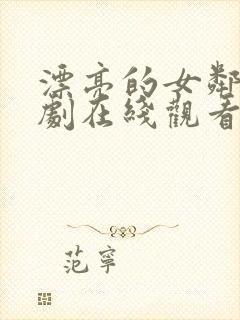 漂亮的女鄰
劇在綫觀看
范寧